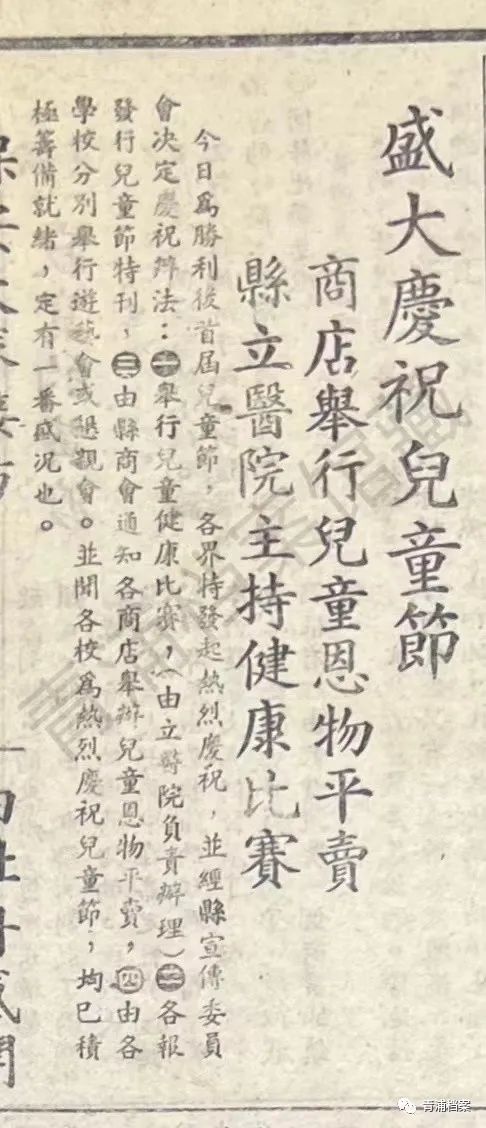 盛大慶祝兒童節
商店舉行兒童恩物平賣
縣立醫院主持健康比賽
今日爲勝利後首屆兒童節，各界特發起熱烈慶祝，並經縣宣傳委員
會决定慶祝辦法：㊀舉行兒童健康比賽，（由立醫院負責辦理）㊁各報
發行兒童節特刊，㊂由縣商會通知各商店舉辦兒童恩物平賣，㊃由各
學校分別舉行遊藝會或懇觀會。並聞各校爲熱烈慶祝兒童節，均已積
極籌備就緒，定有一番盛况也。
青浦档案馆藏
青浦档案